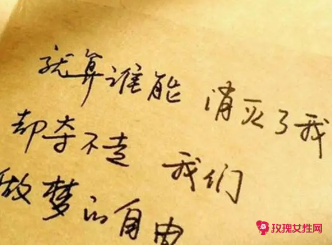 就算谁能 消灭了我
却夺不走 我们
做梦的自由
玫瑰女性网